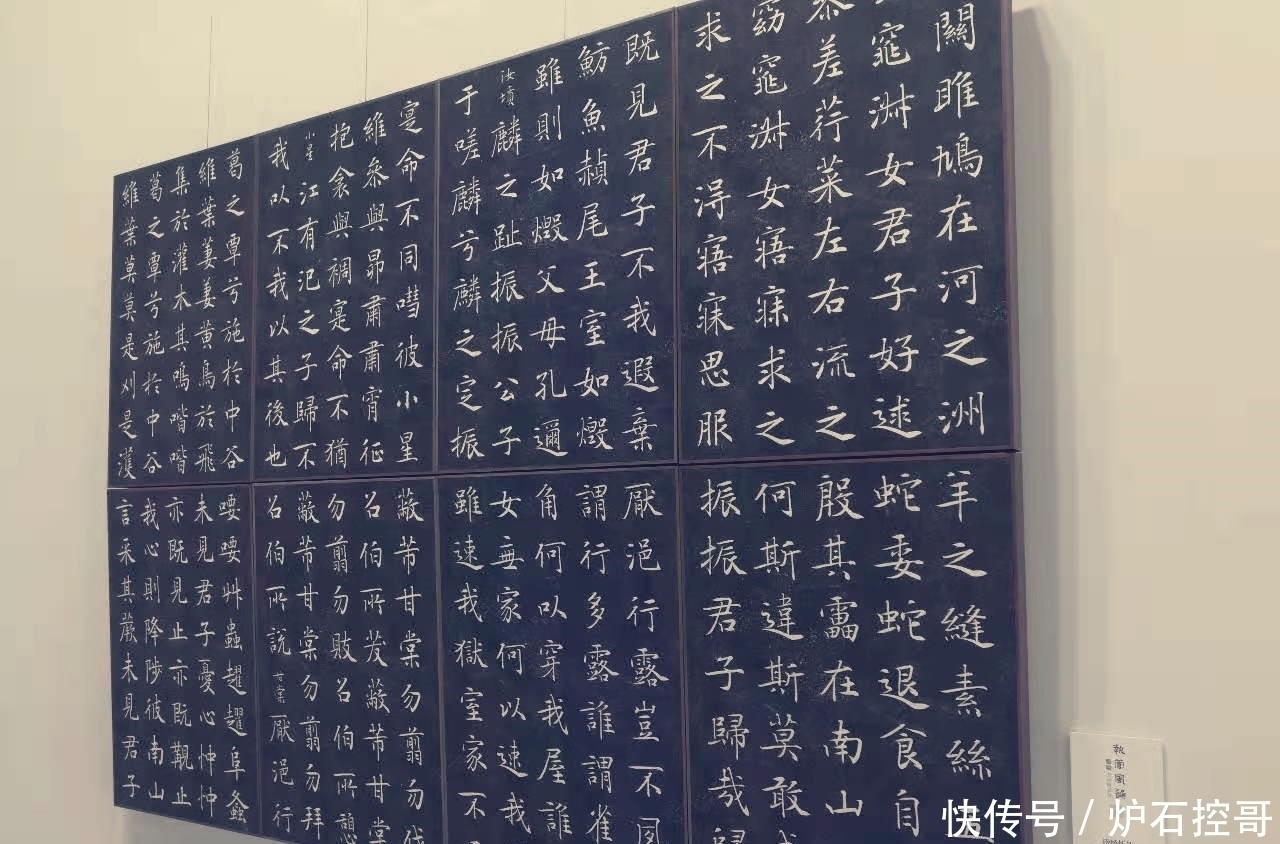 關雎鳩在河之洲
窕淋女君子好逑
參差荇菜左右流之
窈窕淋女寤寐求之
求之不淂寤寐思服
既見君子不我遐棄
魴魚赬尾王室如燬
雖則如燬父母孔邇
汝墳 麟之趾振振公子
于嗟麟兮麟之定振
寔命不同嘒彼小星
維參與昴肅肅宵征
抱衾與裯寔命不猶
小星 江有汜之子歸不
我以不我以其後也
葛之覃兮施於中谷
維葉萋萋黄鳥於飛
集於灌木其鳴喈喈
葛之覃兮施於中谷
維葉莫莫是刈是濩
羊之縫素絲
蛇委蛇退食自
殷其靁在南山
何斯違斯莫敢
振振君子歸哉
厭浥行露豈不夙
謂行多露誰謂雀
角何以穿我屋誰
女無家何以速我
雖速我獄室家不
蔽芾甘棠勿翦勿伐
召伯所茇蔽芾甘棠
勿翦勿敗召伯所憩
蔽芾甘棠勿翦勿拜
召伯所說 甘棠 厭浥行
喓喓草蟲趯趯阜螽
未見君子憂心忡忡
亦既見止亦既覯止
我心則降陟彼南山
言采其蕨未見君子
快传号 / 炉石控哥